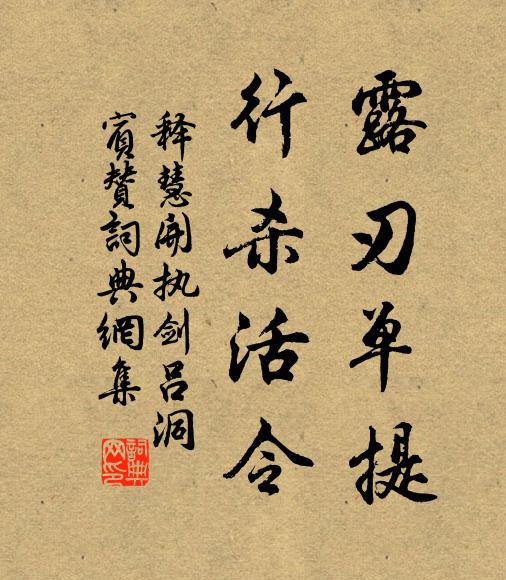 露刃单提
行杀活令
释慧开执剑吕洞
宾赞词典网集
词典
网印